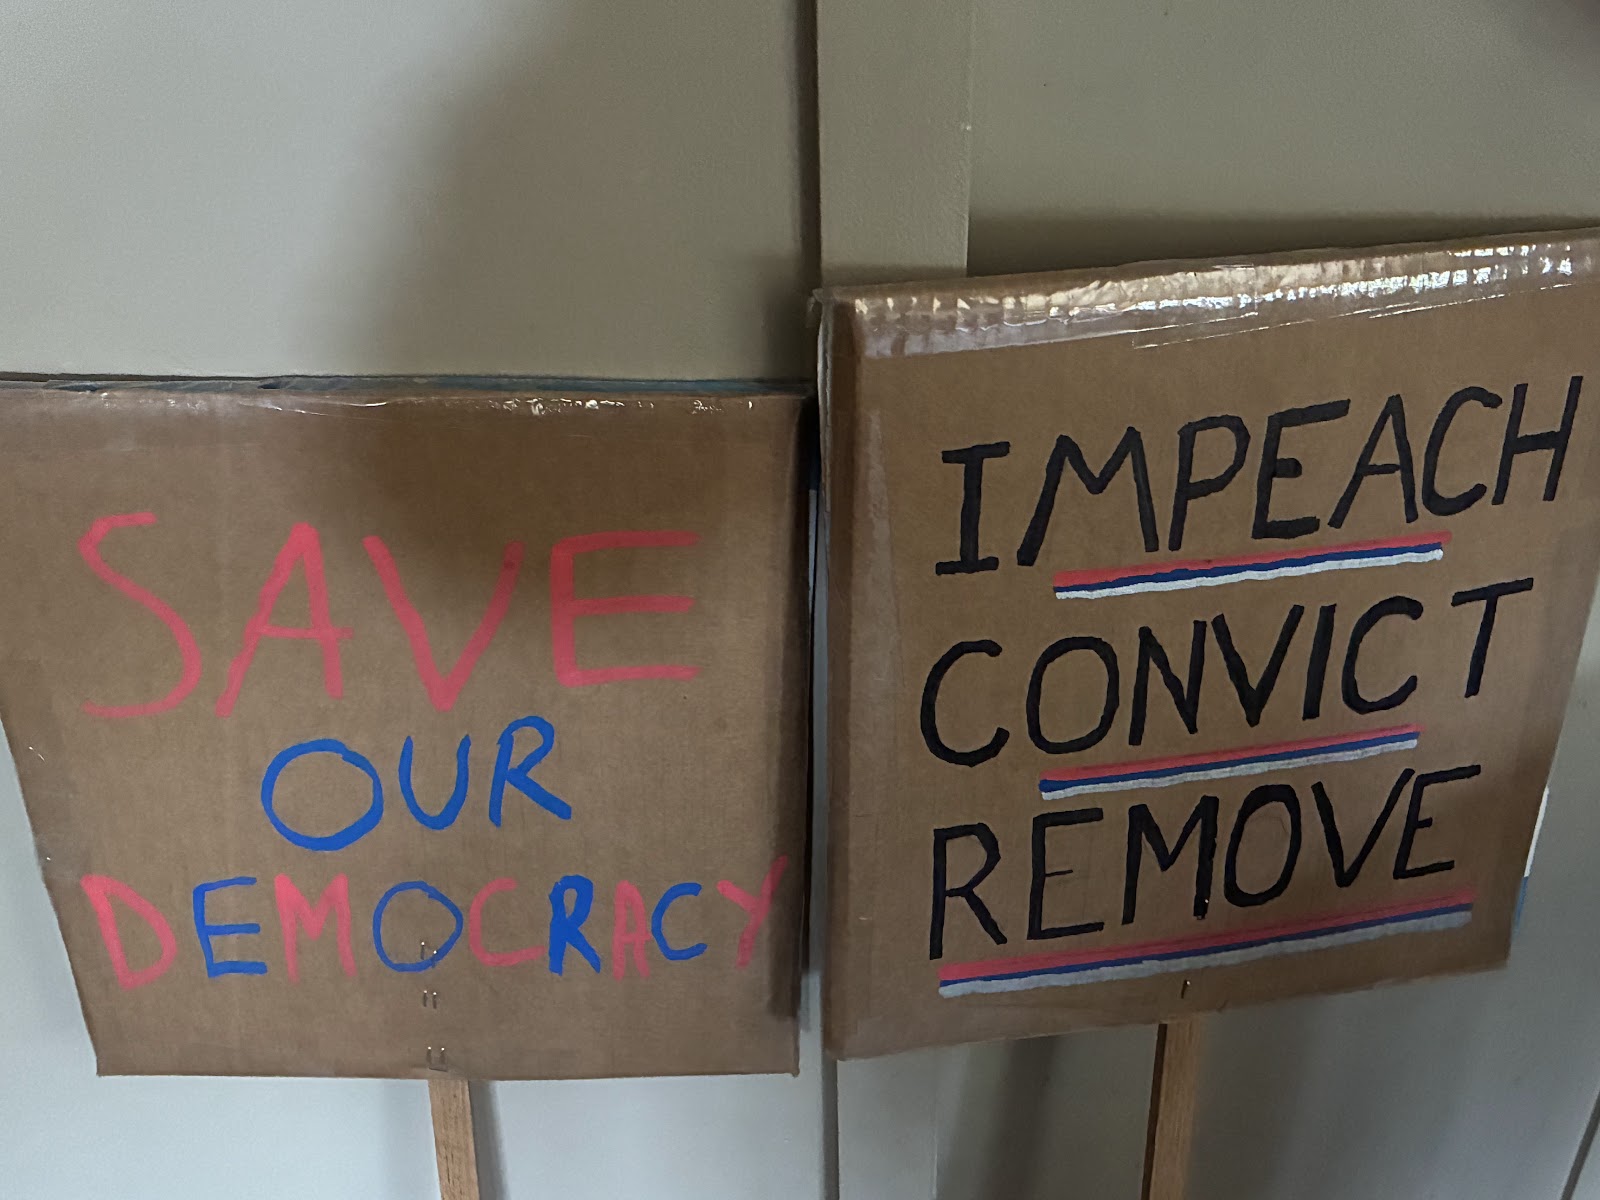 SAVE
OUR
DEMOCRACY
IMPEACH
CONVICT
REMOVE